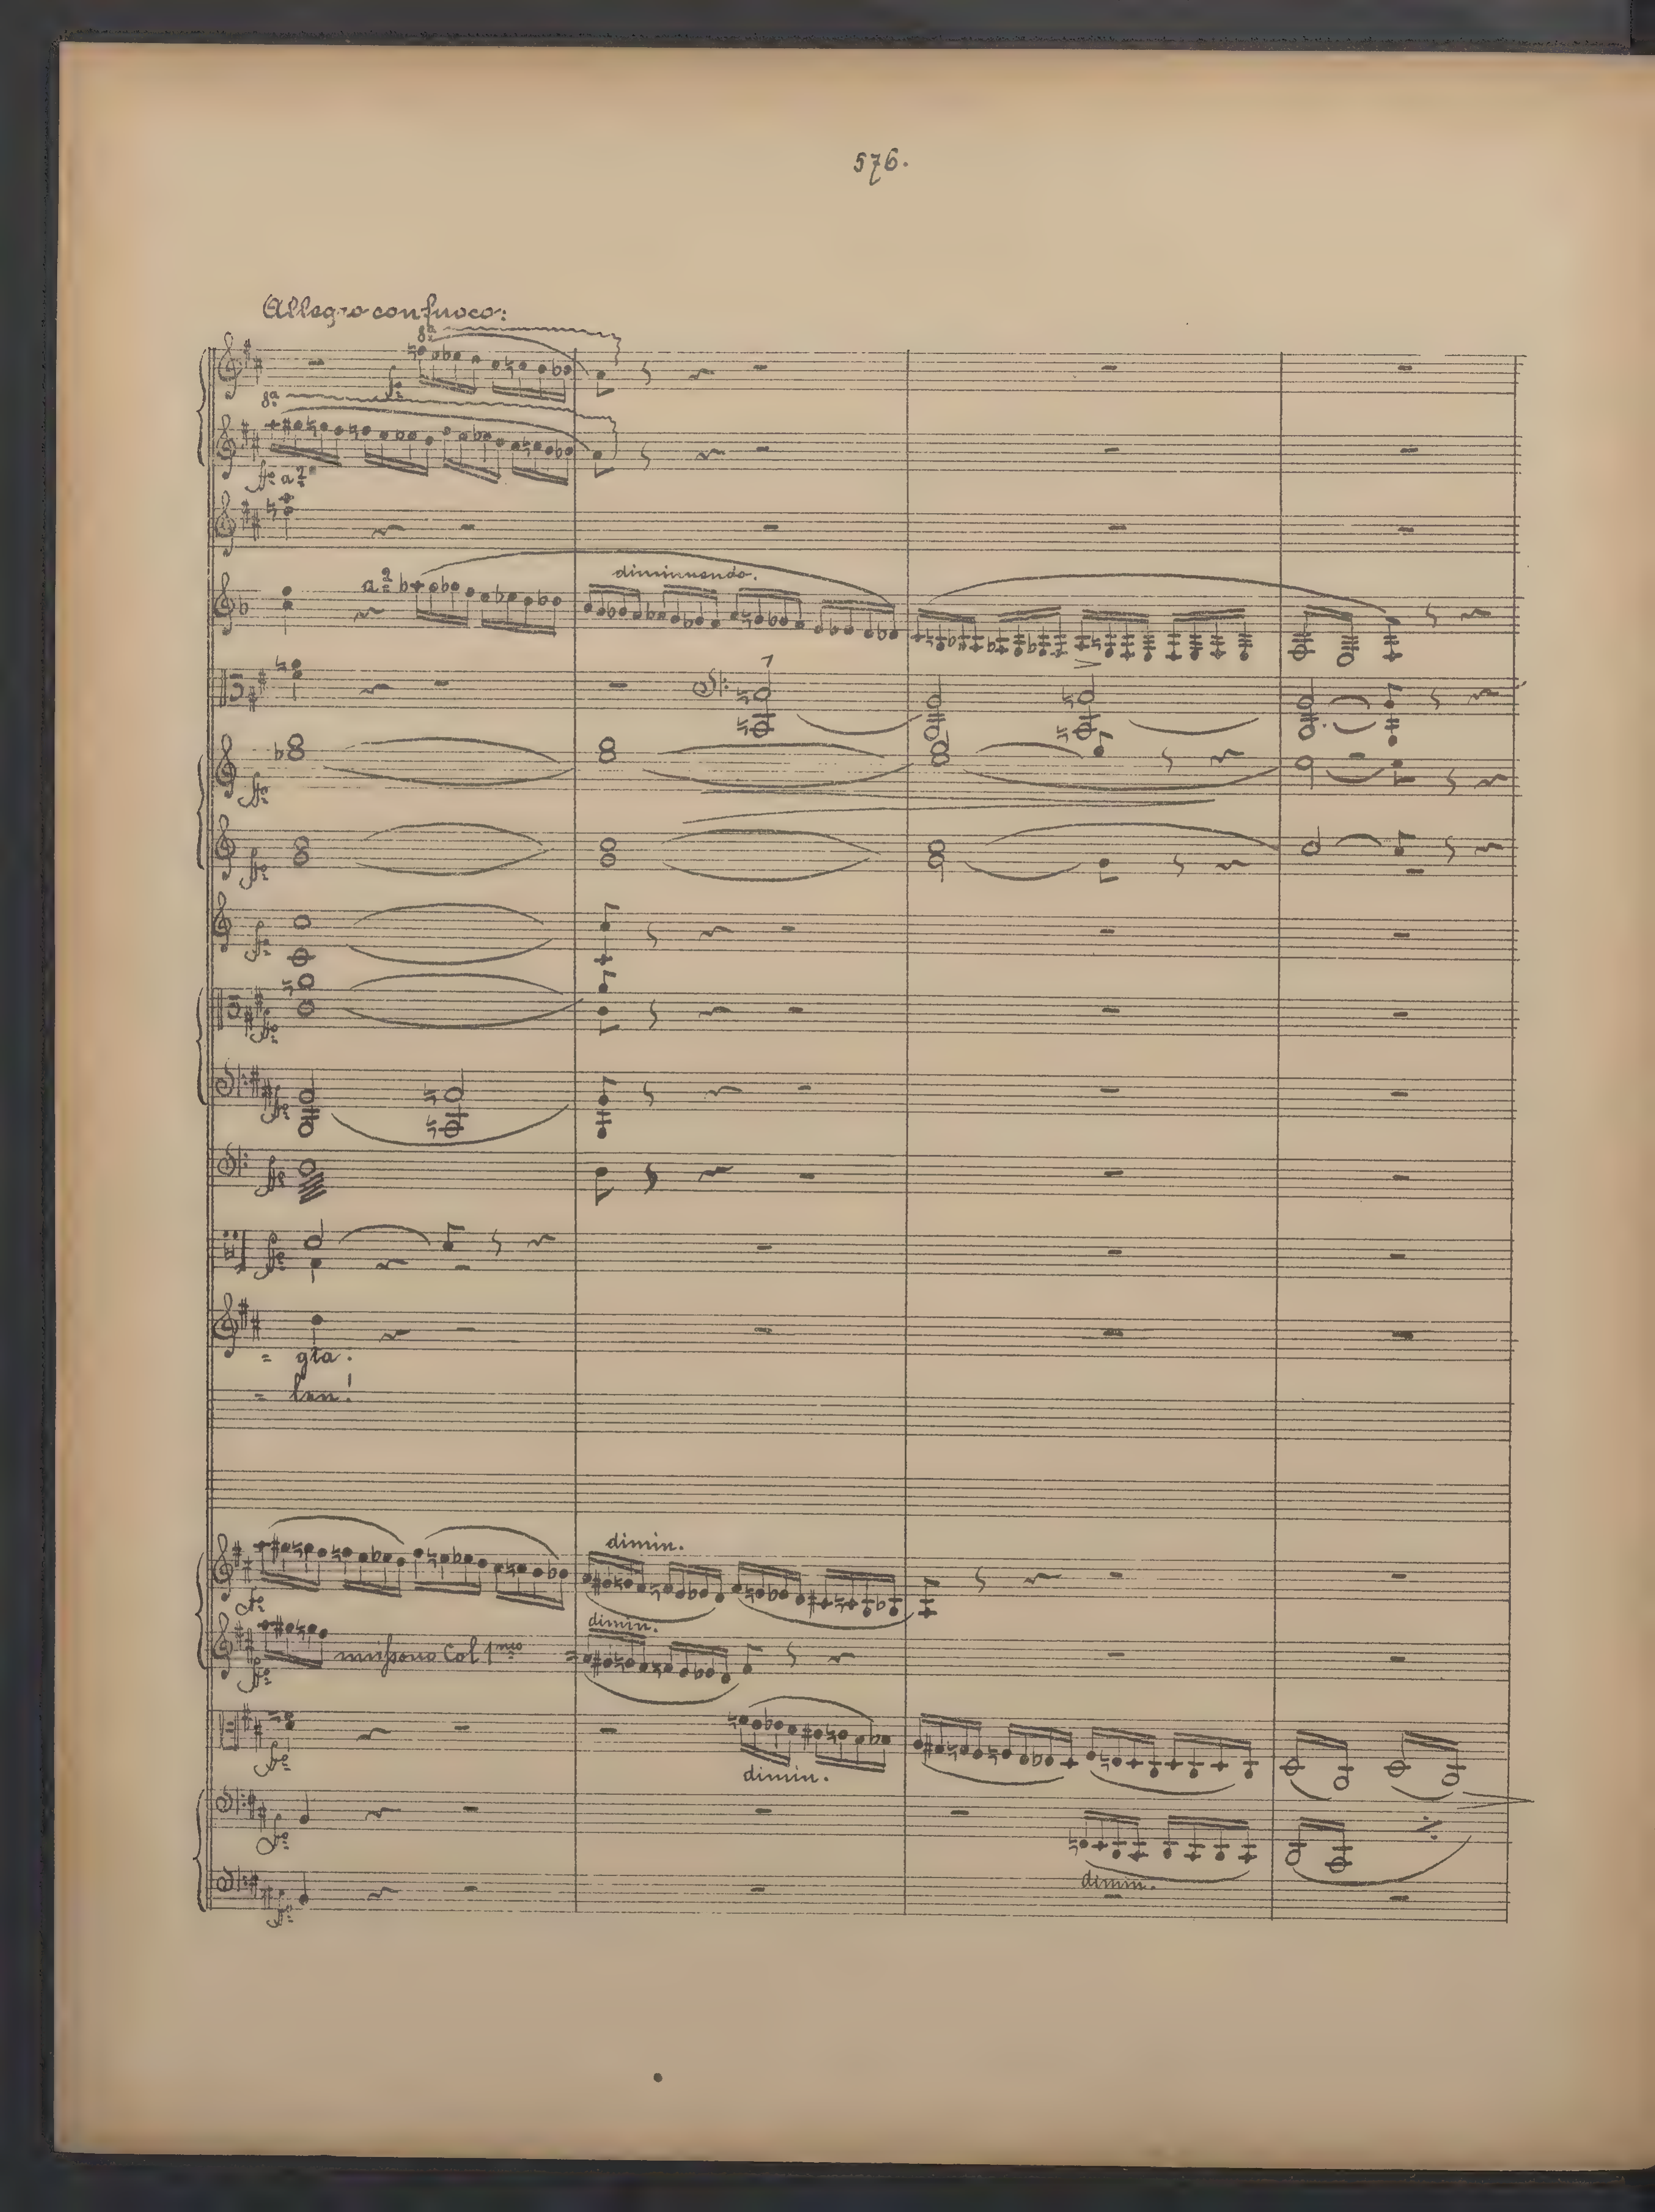 576.
Allegro con fuoco:
8ª
8ª
a 2
a 2
diminuendo.
= gia:
= len!
dimin.
dimin.
unisono Col 1mo
dimin.
dimin.